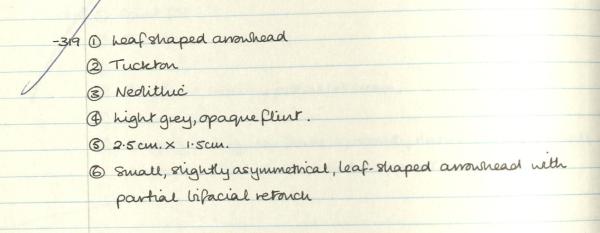 -319 ① Leaf shaped arrowhead
② Tuckton
③ Neolithic
④ Light grey, opaque flint.
⑤ 2.5cm. x 1.5cm.
⑥ Small, slightly asymmetrical, leaf-shaped arrowhead with
partial bifacial retouch